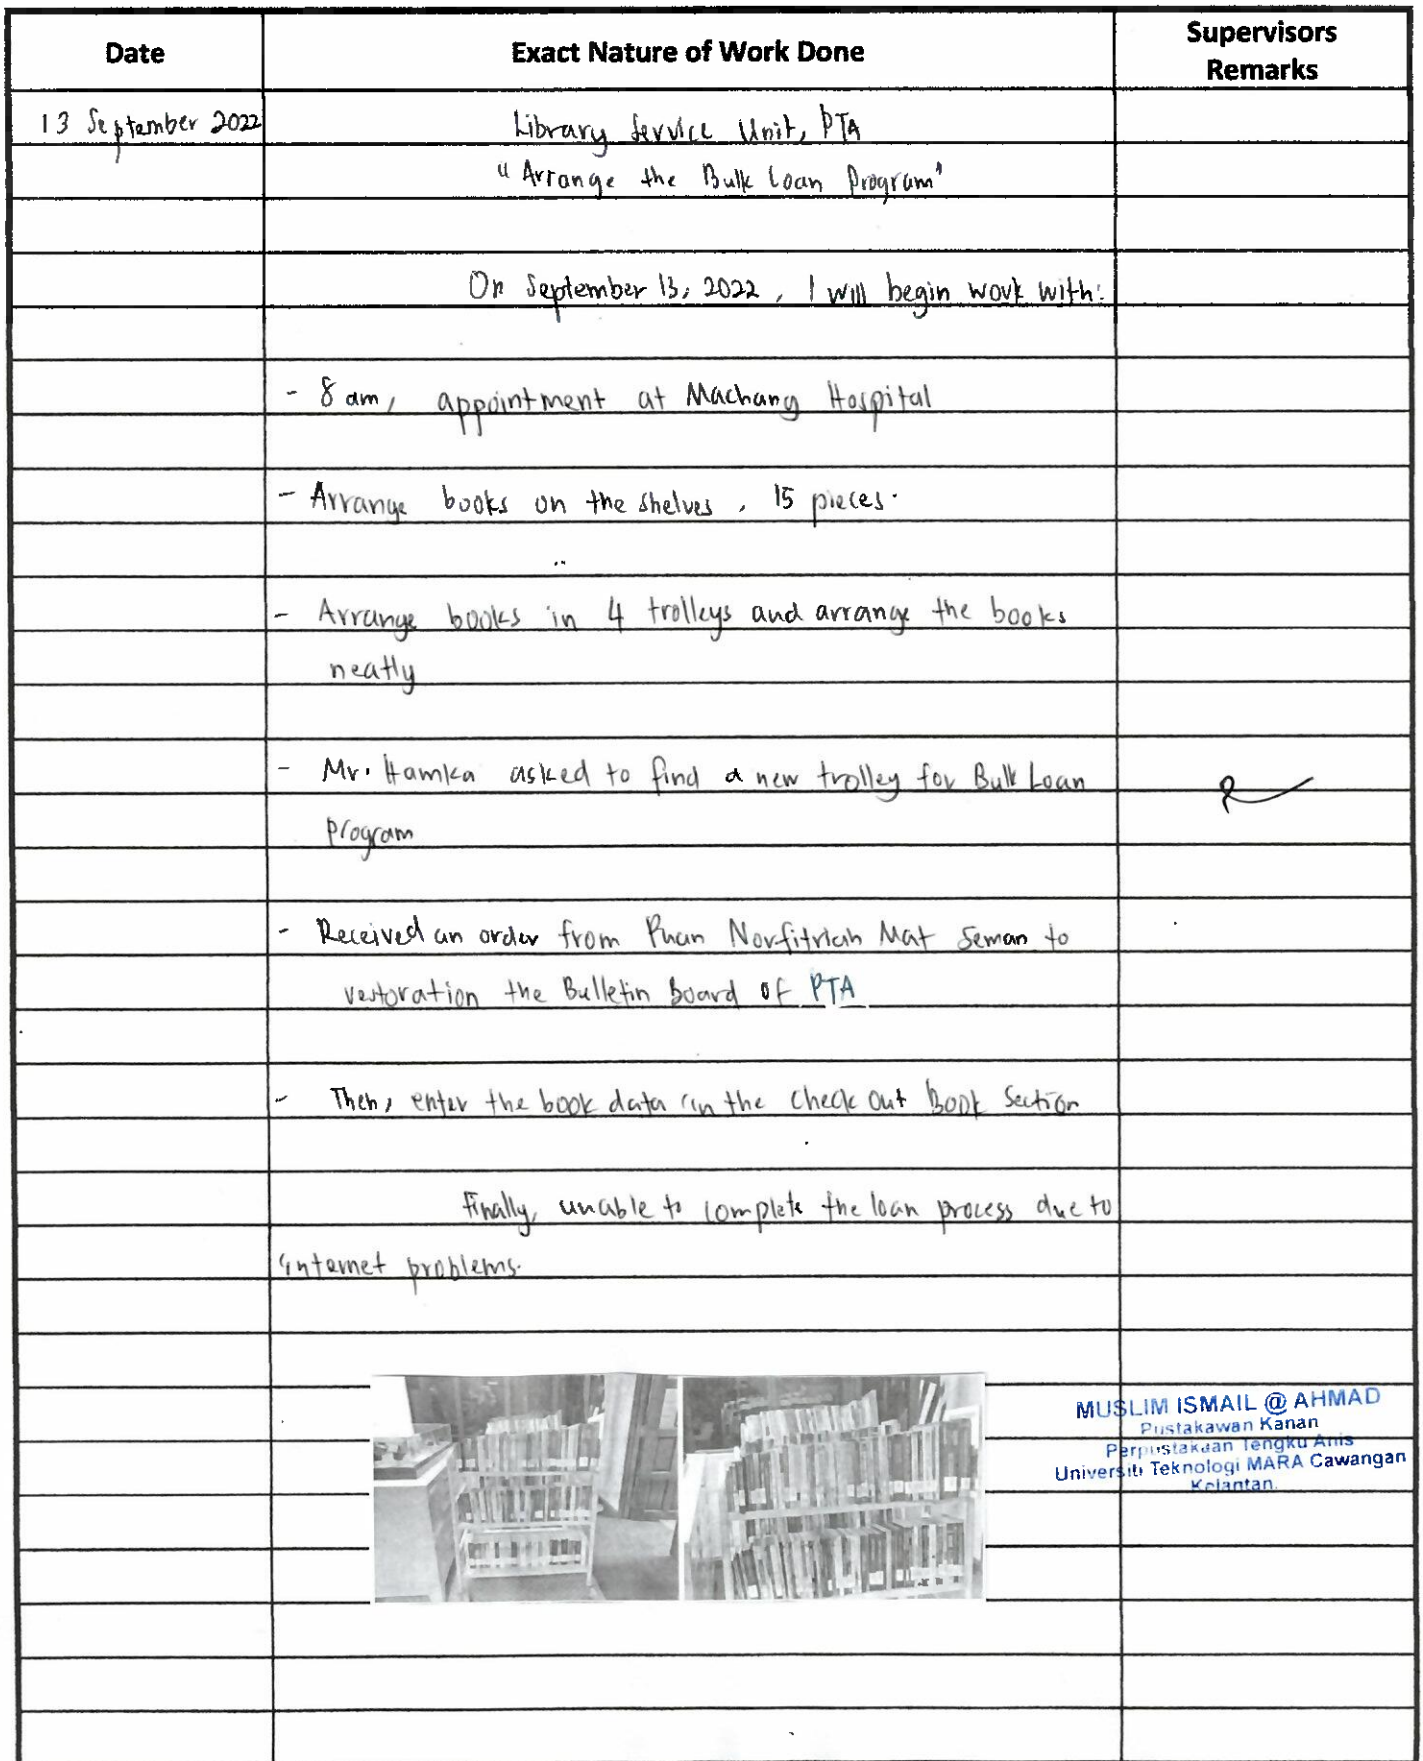 Date
Exact Nature of Work Done
Supervisors
Remarks
13 September 2022
Library Service Unit, PTA
"Arrange the Bulk Loan Program"
On September 13, 2022, I will begin work with:
- 8 am, appointment at Machang Hospital
- Arrange books on the shelves, 15 pieces.
- Arrange books in 4 trolleys and arrange the books
neatly
- Mr. Hamka asked to find a new trolley for Bulk Loan
Program
- Received an order from Puan Norfitriah Mat Seman to
restoration the Bulletin Board of PTA
- Then, enter the book data in the Check Out Book Section
Finally, unable to complete the loan process due to
internet problems.
MUSLIM ISMAIL @ AHMAD
Pustakawan Kanan
Perpustakaan Tengku Anis
Universiti Teknologi MARA Cawangan
Kelantan.